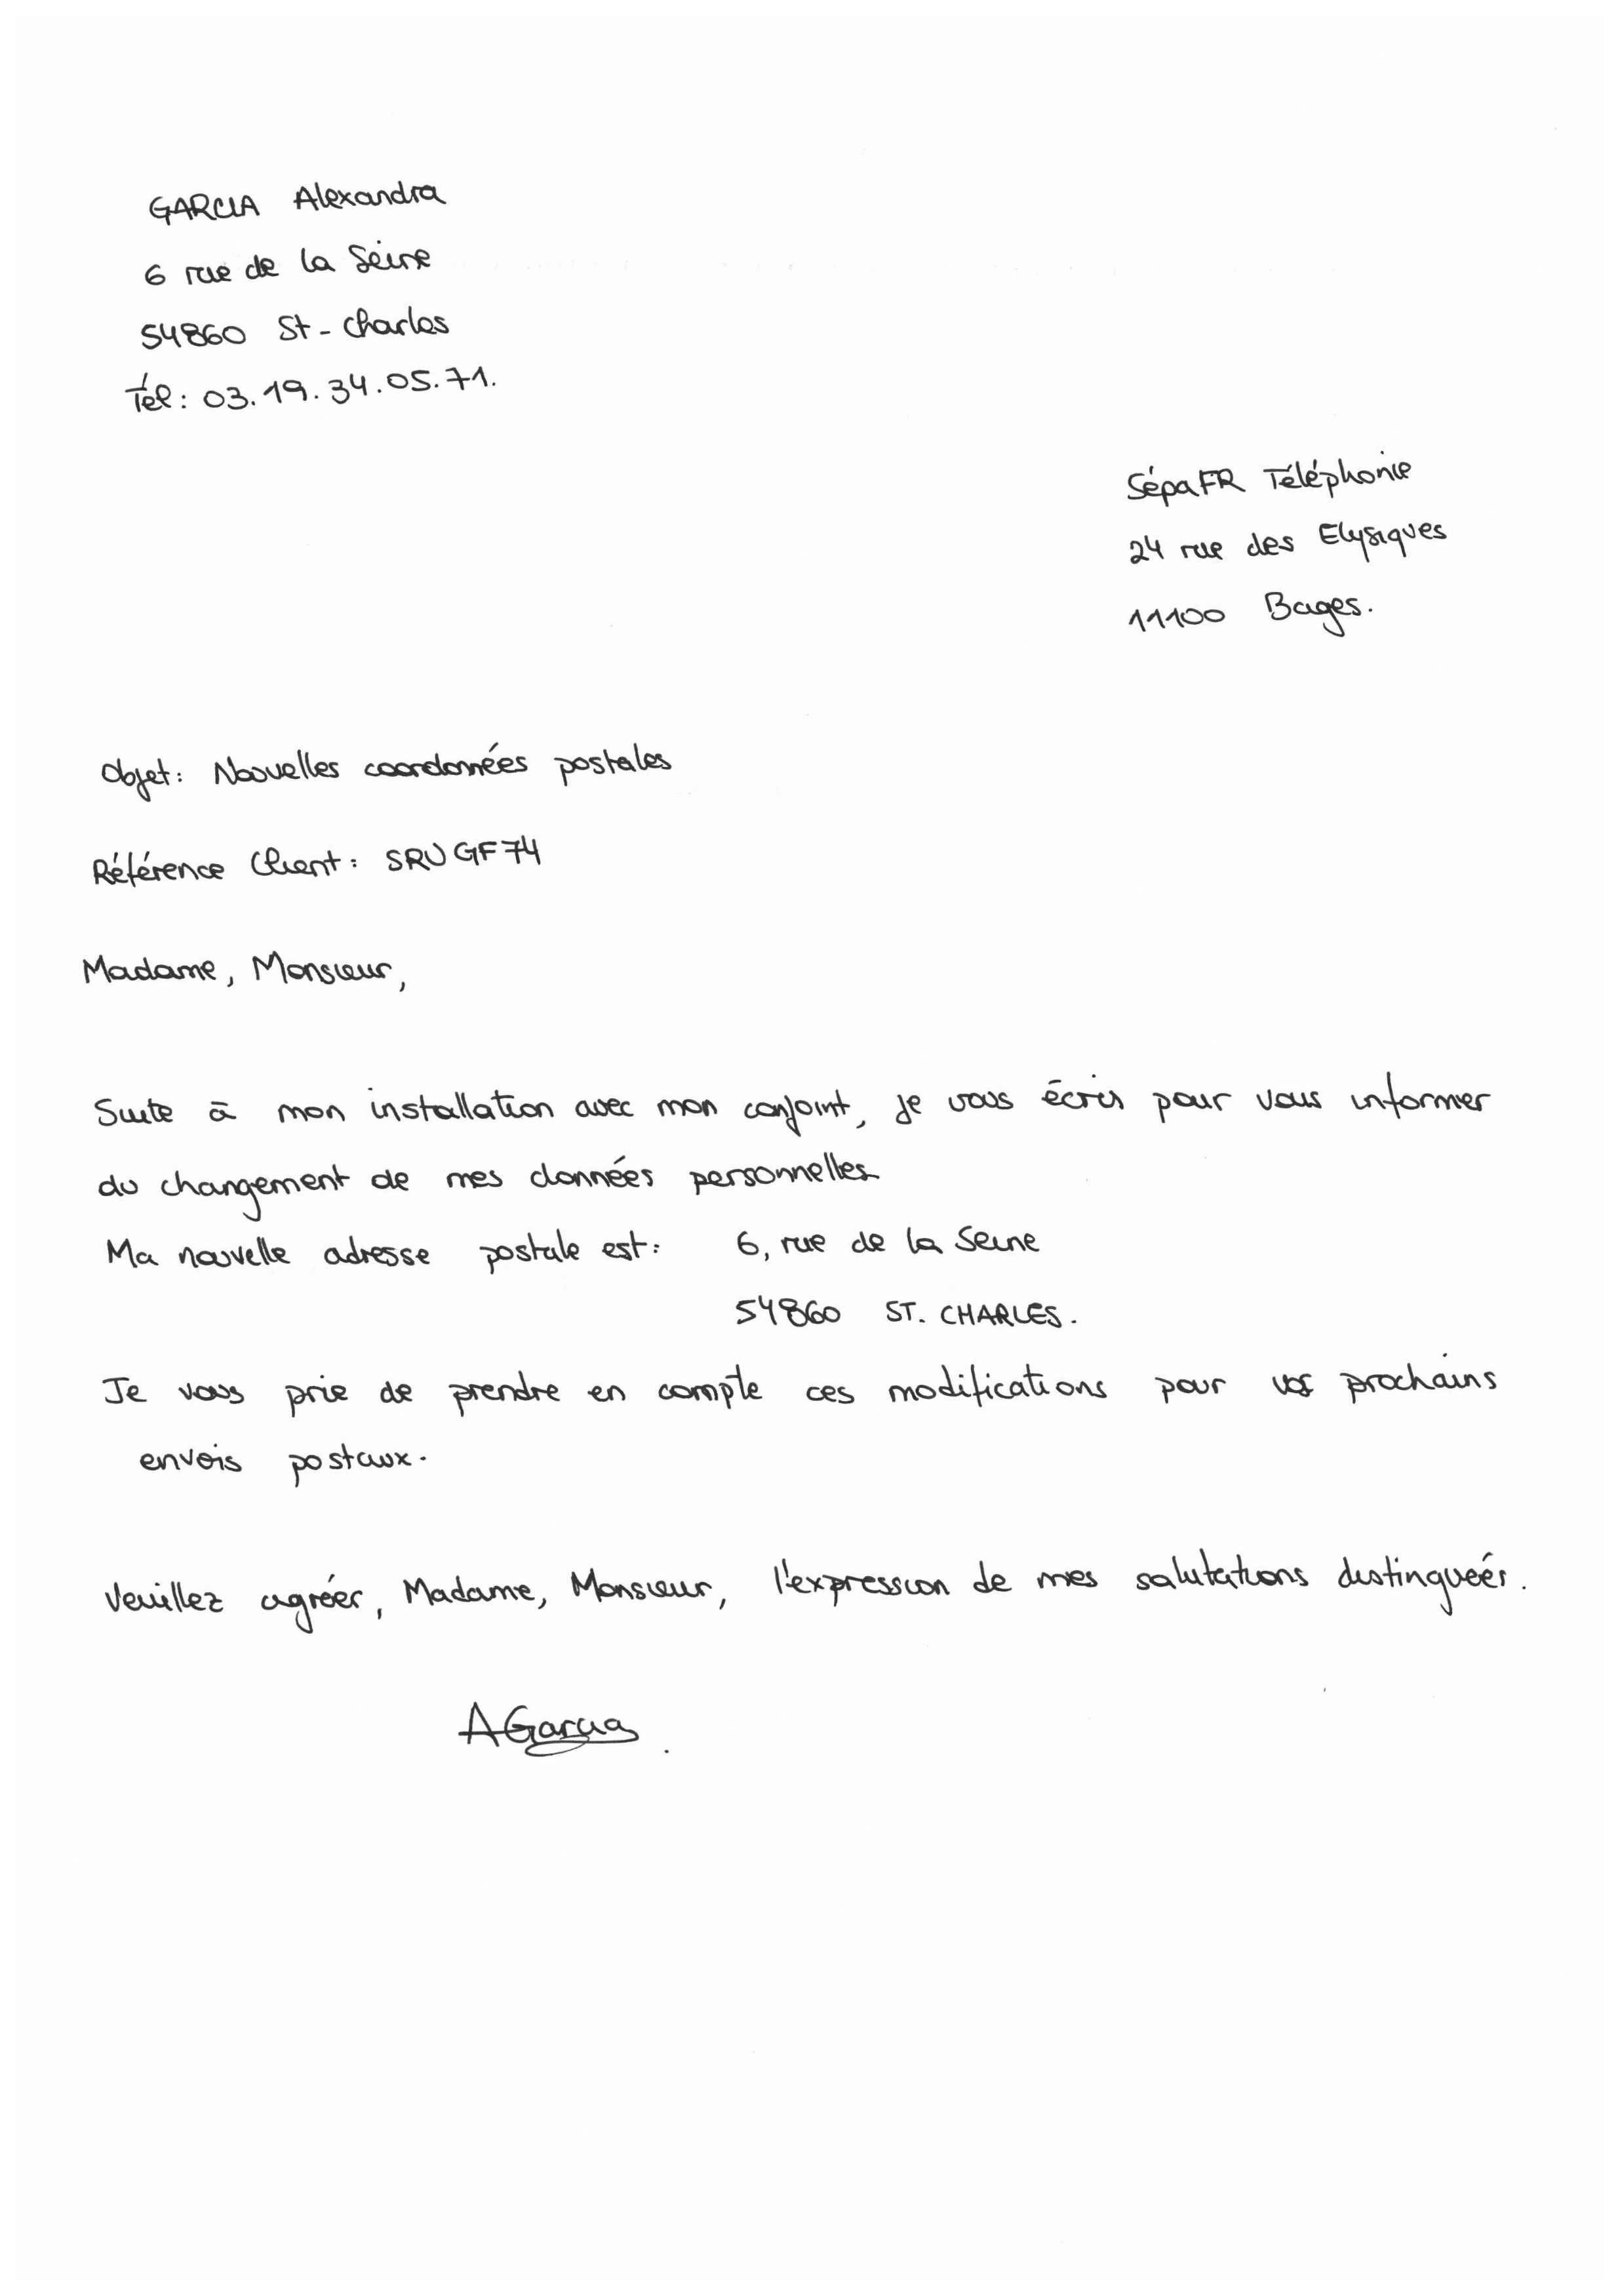 GARCIA Alexandra
6 rue de la Seine
54860 St-Charles
Tél : 03.19.34.05.71.
SépaFR Téléphonie
24 rue des Elysiques
11100 Bages.
Objet : Nouvelles coordonnées postales
Référence Client : SRUGF74
Madame, Monsieur,
Suite à mon installation avec mon conjoint, je vous écris pour vous informer
du changement de mes données personnelles
Ma nouvelle adresse postale est : 6, rue de la Seine
54860 ST. CHARLES.
Je vous prie de prendre en compte ces modifications pour vos prochains
envois postaux.
Veuillez agréer, Madame, Monsieur, l'expression de mes salutations distinguées.
AGarcia.